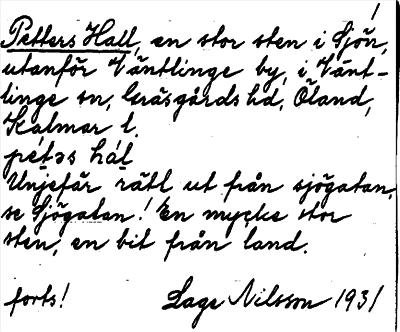 Petters Hall, en stor sten i Sjön,
utanför Väntlinge by, i Vänt-
linge sn, Gräsgårds hd, Öland,
Kalmar l.
pétəs hál
Unjefär rätt ut från sjögatan,
se Sjögatan! En mycke stor
sten, en bit från land.
forts! Lage Nilsson 1931